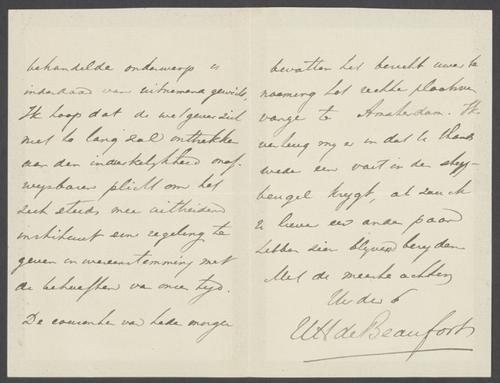 behandelde onderwerp is
inderdaad van uitnemend gewicht.
Ik hoop dat de wetgever zich
niet te lang zal onttrekken
aan den onaf-
wijsbaren plicht om het
zich steeds meer uitbreidend
instituut eene regeling te
geven in overeenstemming met
de behoeften van onze tijd.
De couranten van heden morgen
bevatten het bericht uwer be
noeming tot rechter plaatsver
vanger te Amsterdam. Ik
verheug mij er in dat U thans
weder een voet in den stijg-
beugel krijgt, al zou ik
U liever een ander paard
hebben zien blijven berijden
Met de meeste achting
Uw dw
WH de Beaufort